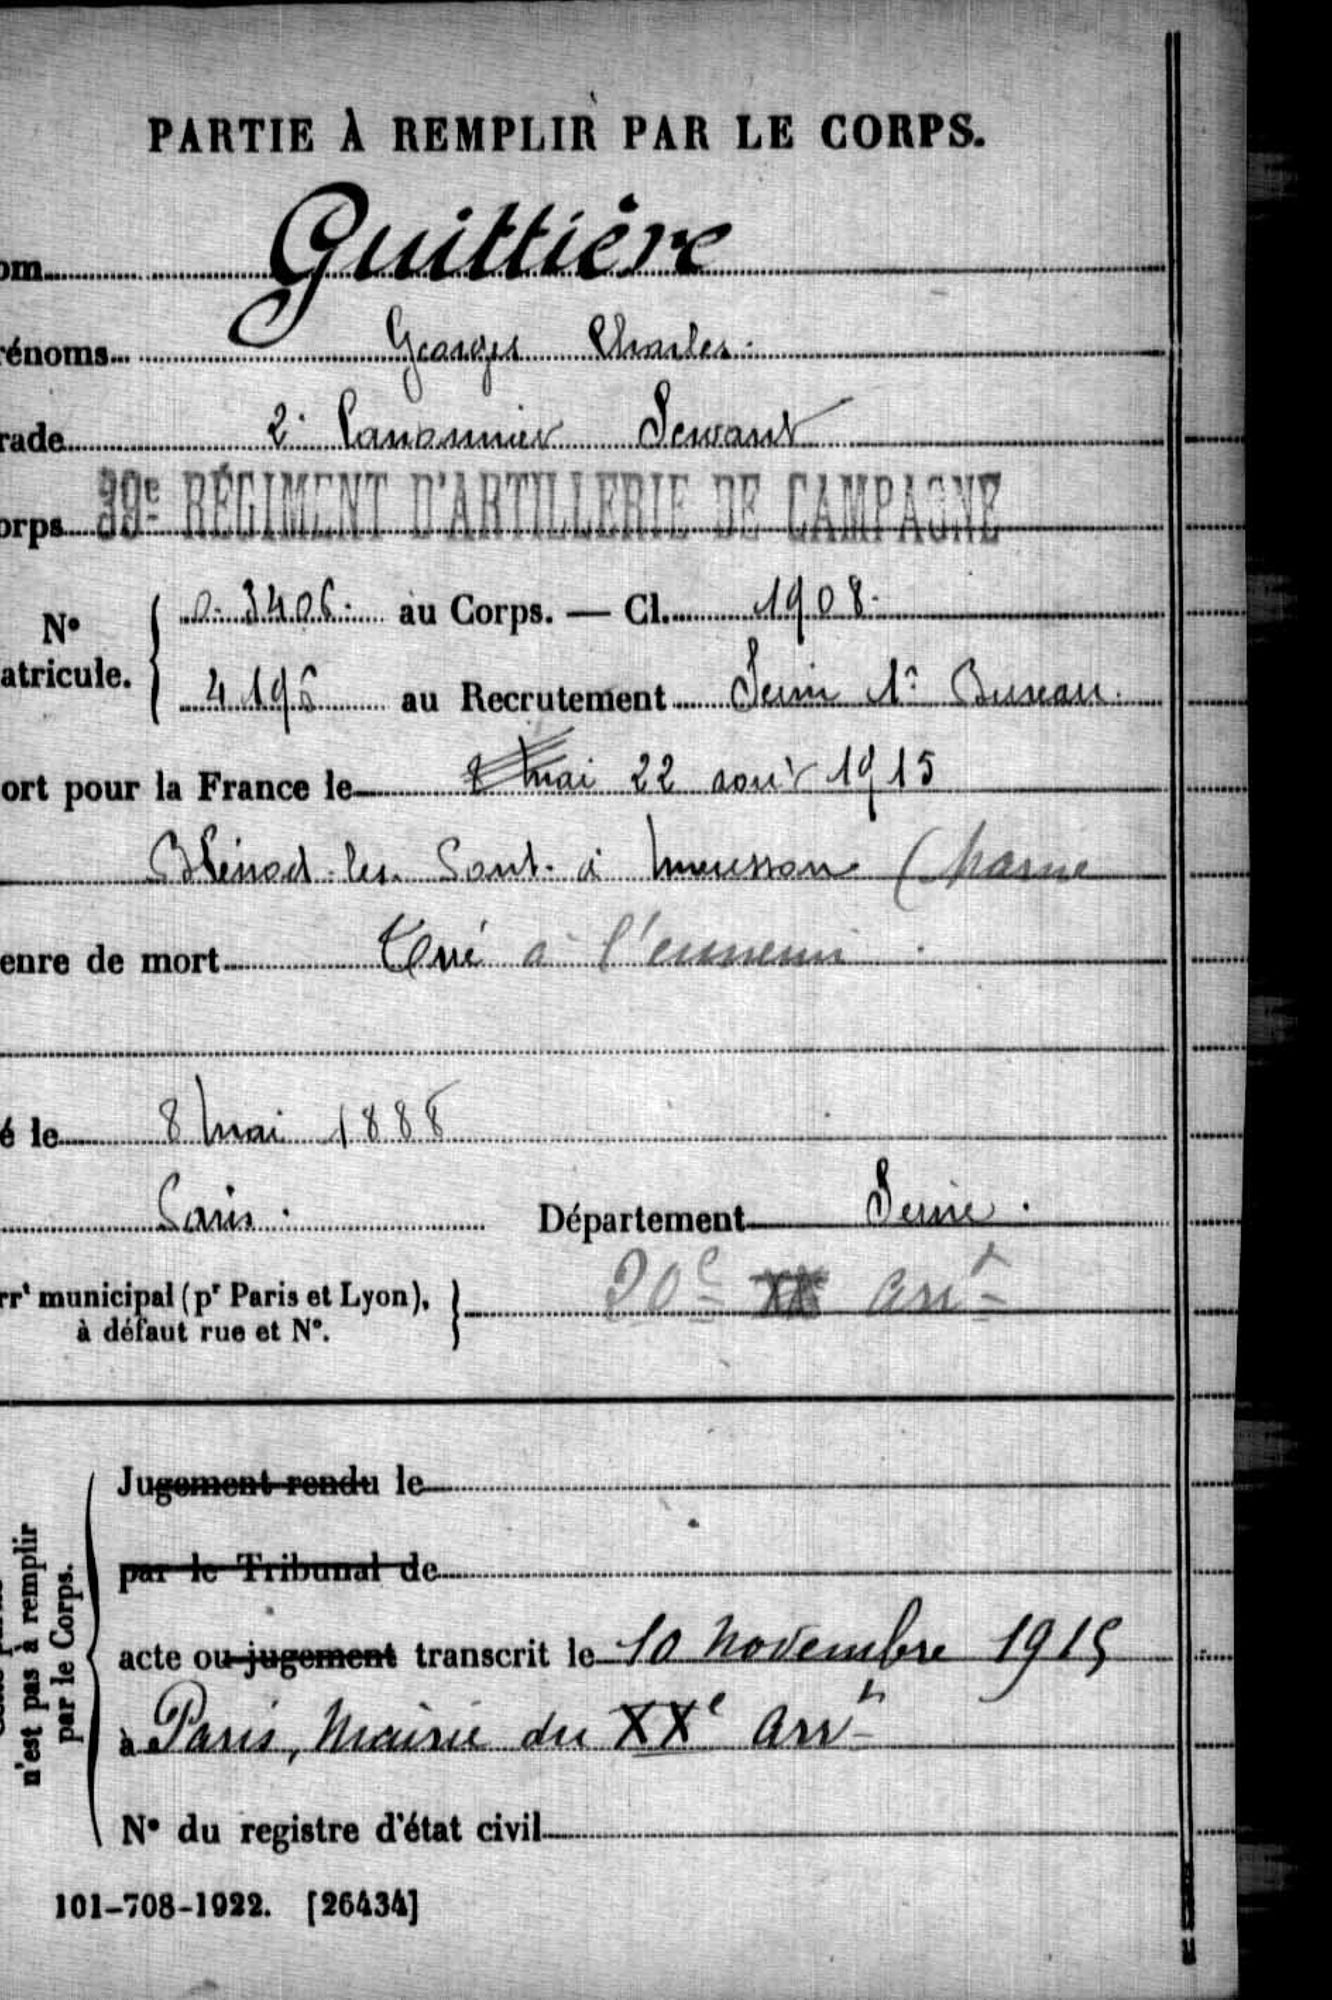 PARTIE À REMPLIR PAR LE CORPS.
om Guittière
rénoms Georges Charles.
rade 2e Canonnier Servant
orps 39e RÉGIMENT D'ARTILLERIE DE CAMPAGNE
No
atricule.
0. 3406. au Corps. — Cl. 1908.
4196 au Recrutement Seine 1r Bureau.
ort pour la France le 8 mai 22 août 1915
Blénod-les-Pont-à-Mousson (Marne
enre de mort Tué à l'ennemi.
é le 8 Mai 1888
Paris. Département Seine.
rrt municipal (pr Paris et Lyon),
à défaut rue et No.
20e XX Arrt
Jugement rendu le
par le Tribunal de
acte ou jugement transcrit le 10 Novembre 1915
à Paris, Mairie du XXe Arrt
No du registre d'état civil
n'est pas à remplir
par le Corps.
101-708-1922. [26434]